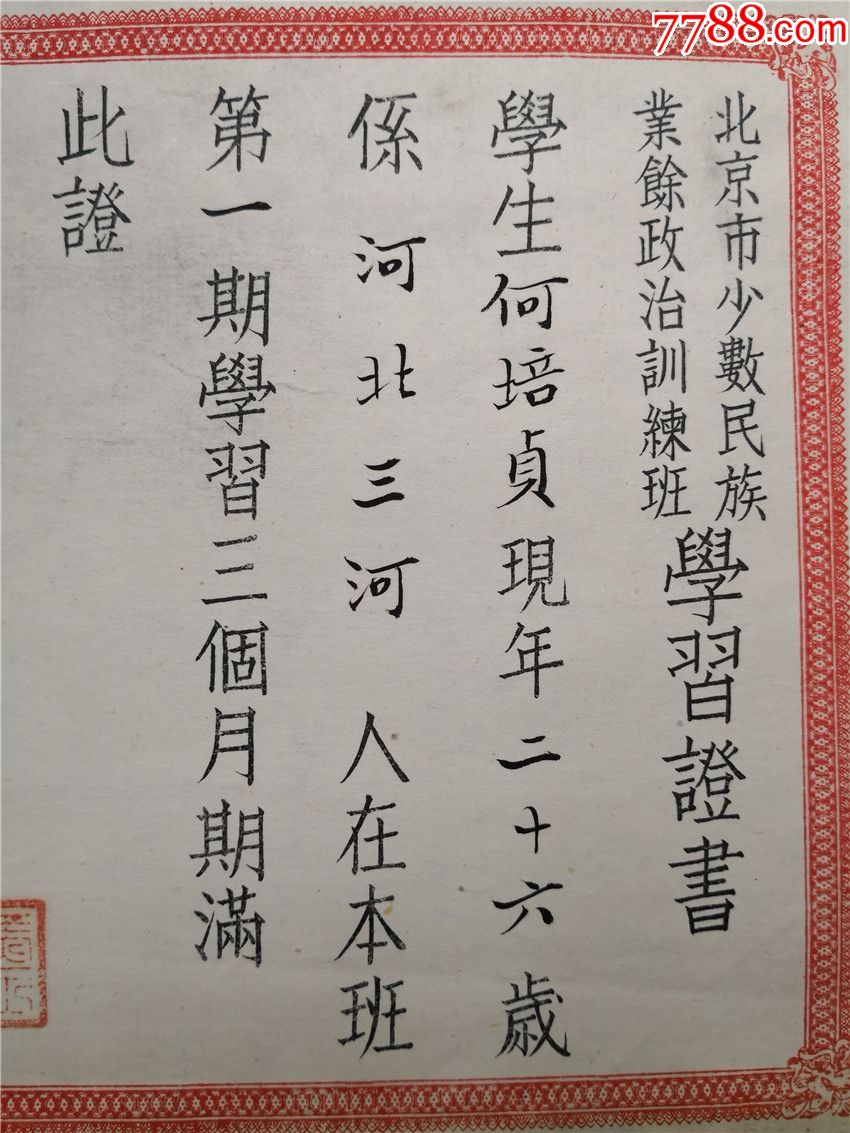 7788.com
北京市少數民族
業餘政治訓練班
學習證書
學生何培貞現年二十六歲
係河北三河人在本班
第一期學習三個月期滿
此證